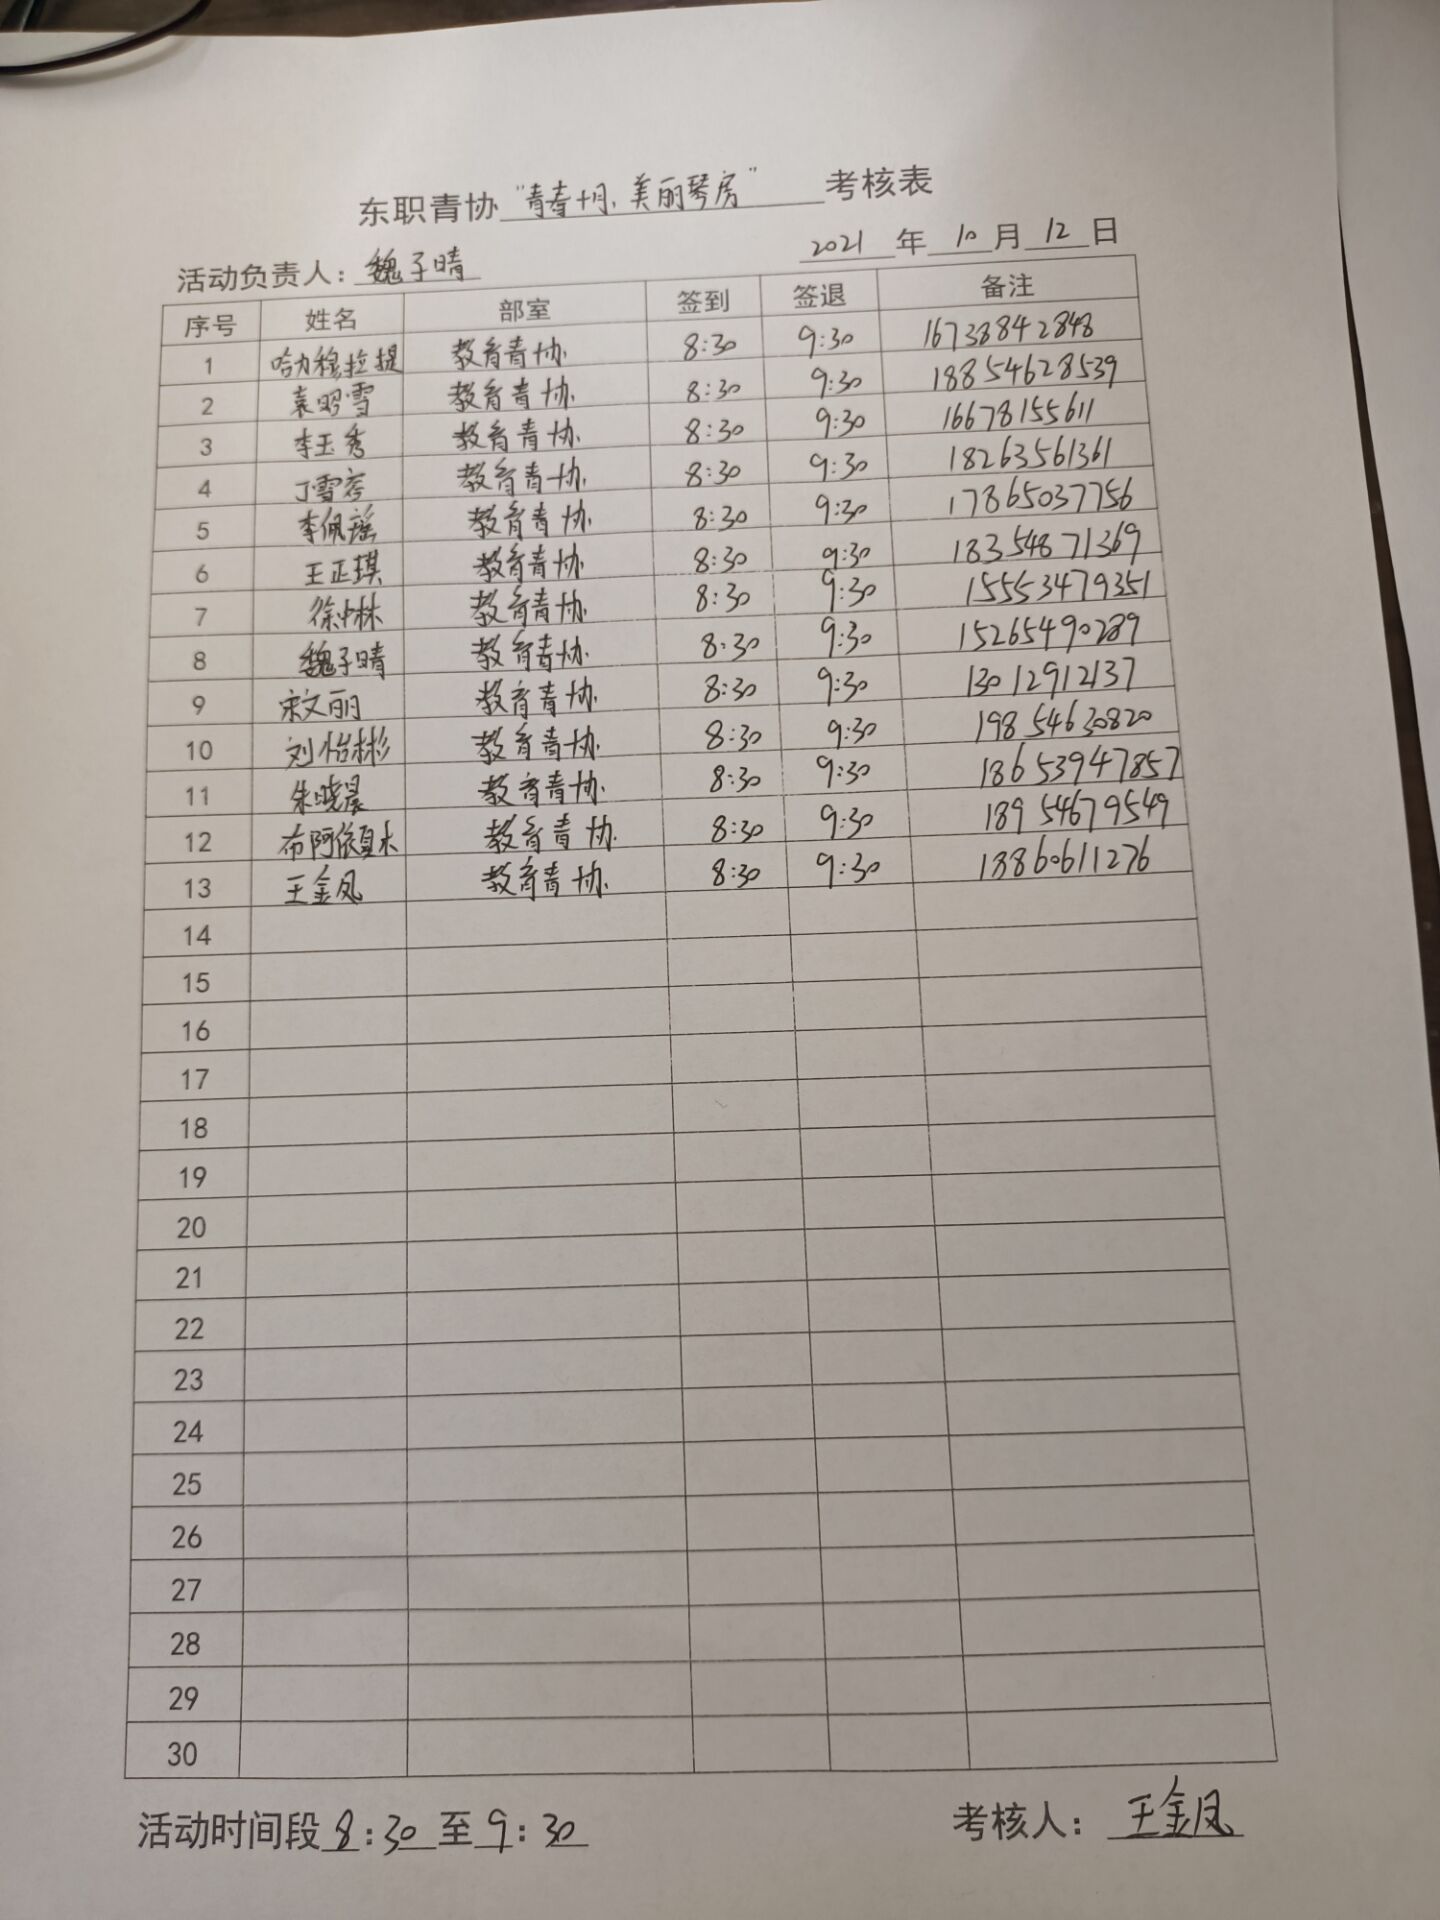 东职青协"青春十月,美丽琴房"考核表
活动负责人:魏子晴 2021年10月12日
序号 姓名 部室 签到 签退 备注
1 哈力穆拉提 教育青协 8:30 9:30 16738842848
2 袁明雪 教育青协 8:30 9:30 18854628539
3 李玉秀 教育青协 8:30 9:30 16678155611
4 丁雪 教育青协 8:30 9:30 18263561361
5 李佩瑶 教育青协 8:30 9:30 17865037756
6 王正琪 教育青协 8:30 9:30 18354871369
7 徐中林 教育青协 8:30 9:30 15553479351
8 魏子晴 教育青协 8:30 9:30 15265490289
9 宋文丽 教育青协 8:30 9:30 13012912137
10 刘怡彬 教育青协 8:30 9:30 19854630820
11 朱晓晨 教育青协 8:30 9:30 18653947857
12 布阿依夏木 教育青协 8:30 9:30 18954679549
13 王金凤 教育青协 8:30 9:30 18860611276
14
15
16
17
18
19
20
21
22
23
24
25
26
27
28
29
30
活动时间段8:30至9:30 考核人:王金凤